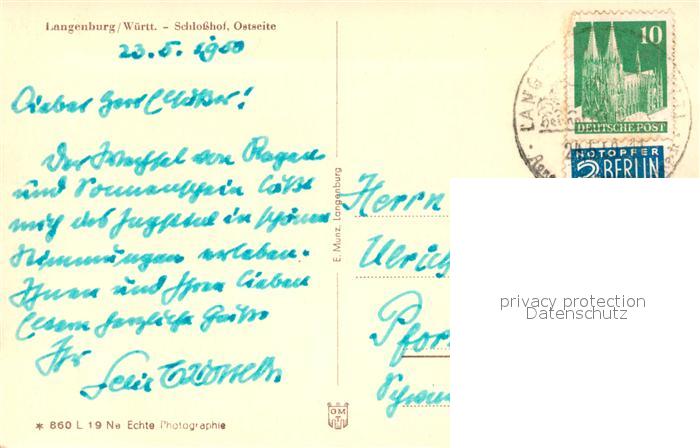 Langenburg/Württ. – Schloßhof, Ostseite
23.5.1950
Lieber Herr
Der Wechsel von Regen
und Sonnenschein läßt
mich das Jagsttal in schönen
Stimmungen erleben.
Ihnen und Ihren lieben
Eltern herzliche Grüße
Ihr
Felix
* 860 L 19 Ne Echte Photographie
E. Munz, Langenburg
10
DEUTSCHE POST
NOTOPFER
2 BERLIN
LANG
Herrn
Ulrich
Pfor
Schwa
privacy protection
Datenschutz